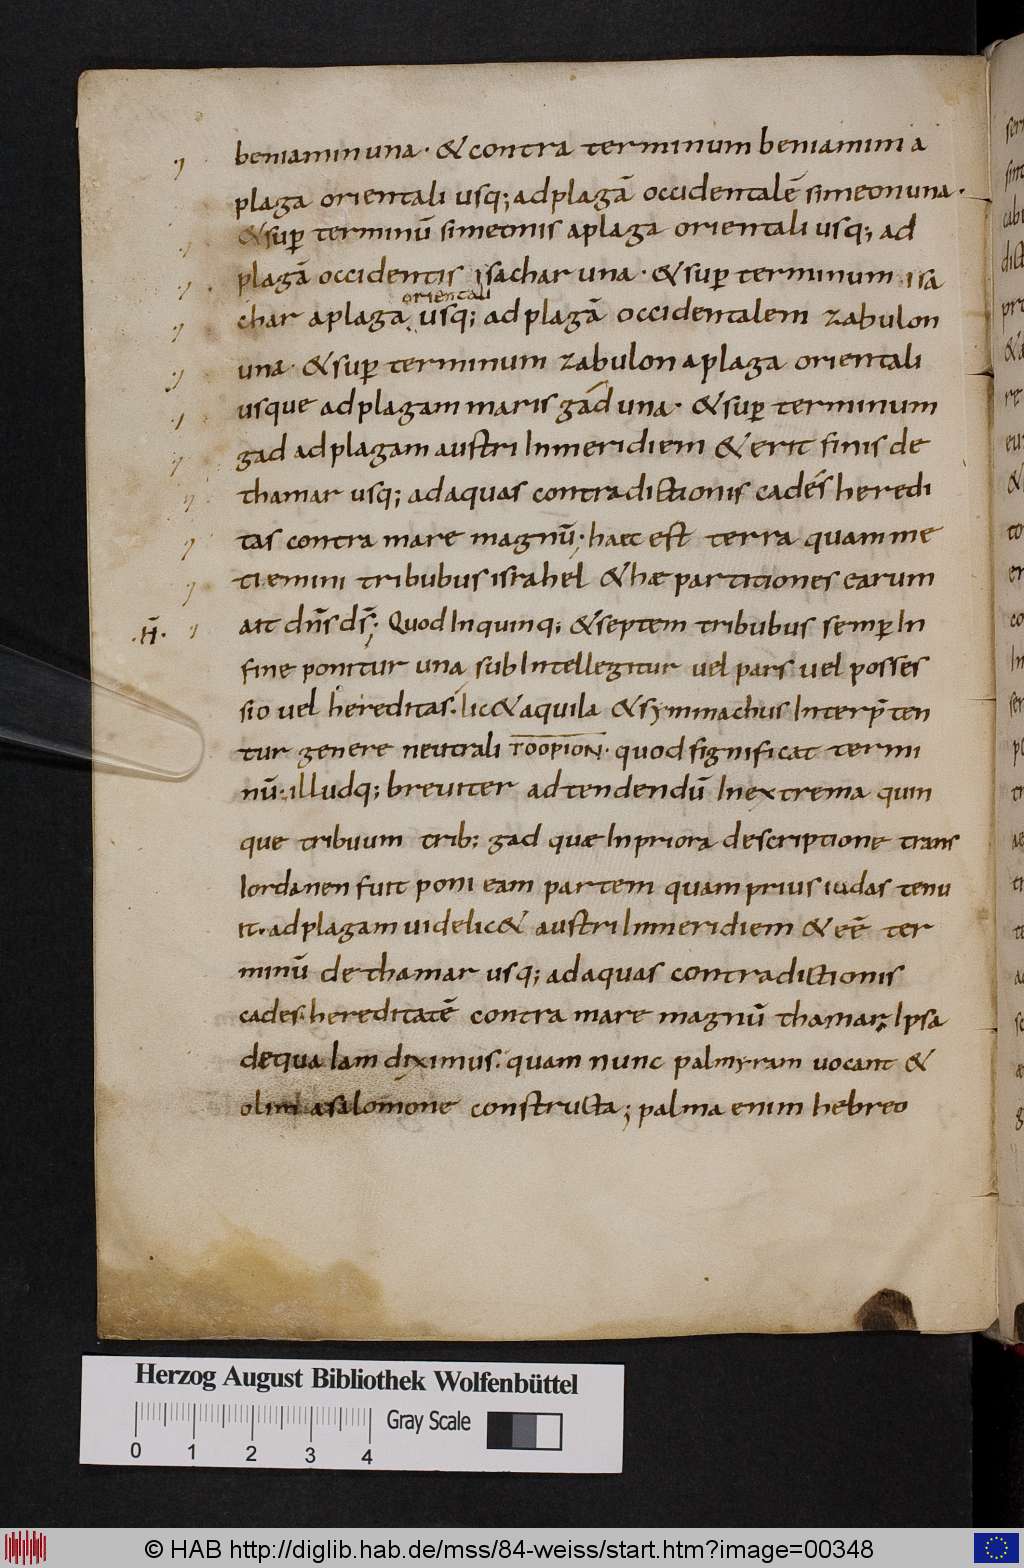 beniamin una · & contra terminum beniamini a
plaga orientali usq; ad plagā occidentalē simeon una ·
& sup terminū simeonis a plaga orientali usq; ad
plagā occidentis isachar una · & sup terminum isa
orientali
char a plaga usq; ad plagā occidentalem zabulon
una · & sup terminum zabulon a plaga orientali
usque ad plagam maris gad una · & sup terminum
gad ad plagam austri In meridiem & erit finis de
thamar usq; ad aquas contradictionis cades heredi
tas contra mare magnū · haec est terra quam me
tiemini tribubus israhel & hae partitiones earum
·H̄·
ait dn̄s ds̄; Quod In quinq; & septem tribubus semp In
fine ponitur una sub Intellegitur uel pars uel posses
sio uel hereditas · lic& aquila & symmachus Interp̄ten
tur genere neutrali TOOPION · quod significat termi
nū · illudq; breuiter adtendendū In extrema quin
que tribuum trib: gad quae In priora descriptione trans
Iordanen fuit poni eam partem quam prius iudas tenu
it · ad plagam uidelic& austri In meridiem & eē ter
minū de thamar usq; ad aquas contradictionis
cades · hereditatē contra mare magnū thamar; Ipsa
de qua Iam diximus · quam nunc palmyram uocant &
olim a salomone constructa; palma enim hebreo
Herzog August Bibliothek Wolfenbüttel
Gray Scale
0 1 2 3 4
© HAB http://diglib.hab.de/mss/84-weiss/start.htm?image=00348